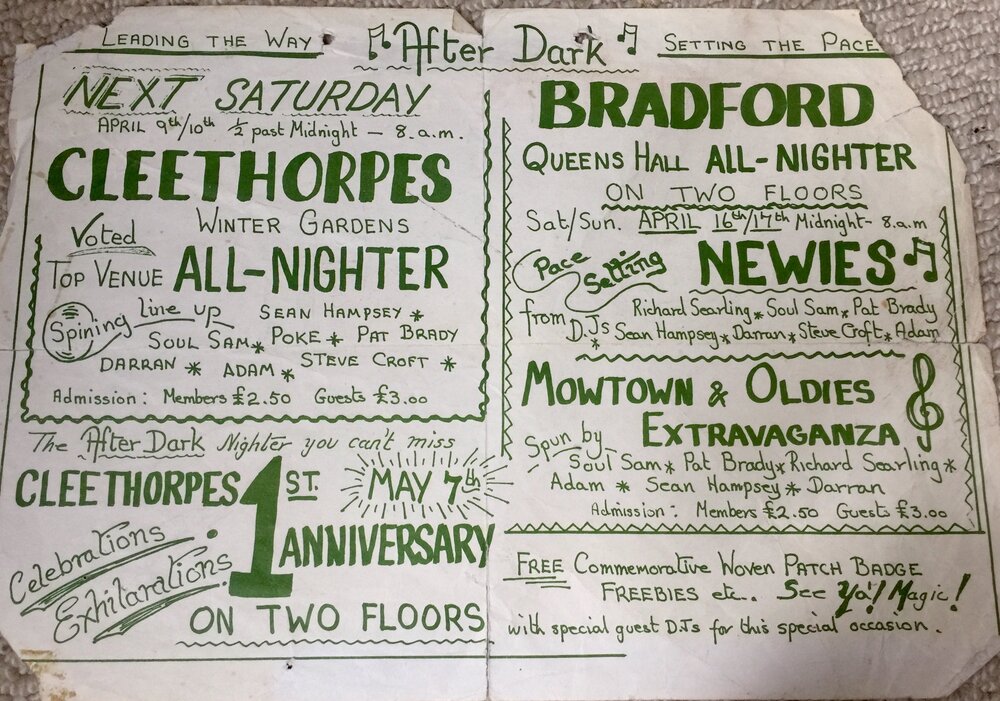 LEADING THE WAY
After Dark
SETTING THE PACE
NEXT SATURDAY
APRIL 9th/10th ½ past Midnight — 8.a.m.
CLEETHORPES
WINTER GARDENS
Voted
TOP VENUE ALL-NIGHTER
Spining Line up SEAN HAMPSEY *
SOUL SAM * POKE * PAT BRADY
DARRAN * ADAM * STEVE CROFT *
Admission: Members £2.50 Guests £3.00
The After Dark Nighter you can't miss
CLEETHORPES 1ST. MAY 7th
ANNIVERSARY
Celebrations
Exhilarations
ON TWO FLOORS
BRADFORD
QUEENS HALL ALL-NIGHTER
ON TWO FLOORS
Sat/Sun. APRIL 16th/17th Midnight- 8.a.m
Pace Setting NEWIES
from D.J.s Richard Searling * Soul Sam * Pat Brady
* Sean Hampsey * Darran * Steve Croft * Adam
MOWTOWN & OLDIES
EXTRAVAGANZA
Spun by
Soul Sam * Pat Brady * Richard Searling *
Adam * Sean Hampsey * Darran
Admission: Members £2.50 Guests £3.00
FREE Commemorative Woven PATCH BADGE
FREEBIES etc.. See Ya'! Magic!
with special guest D.J.s for this special occasion.